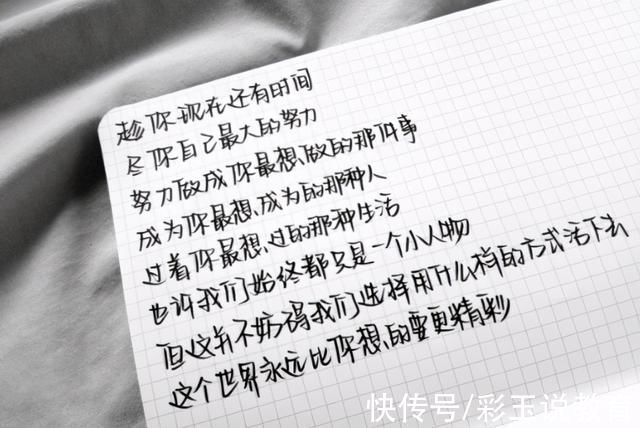 趁你现在还有时间
尽你自己最大的努力
努力做成你最想做的那件事
成为你最想成为的那种人
过着你最想过的那种生活
也许我们始终都只是一个小人物
但这并不妨碍我们选择用什么样的方式活下去
这个世界永远比你想的要更精彩
快传号/彩玉说教育